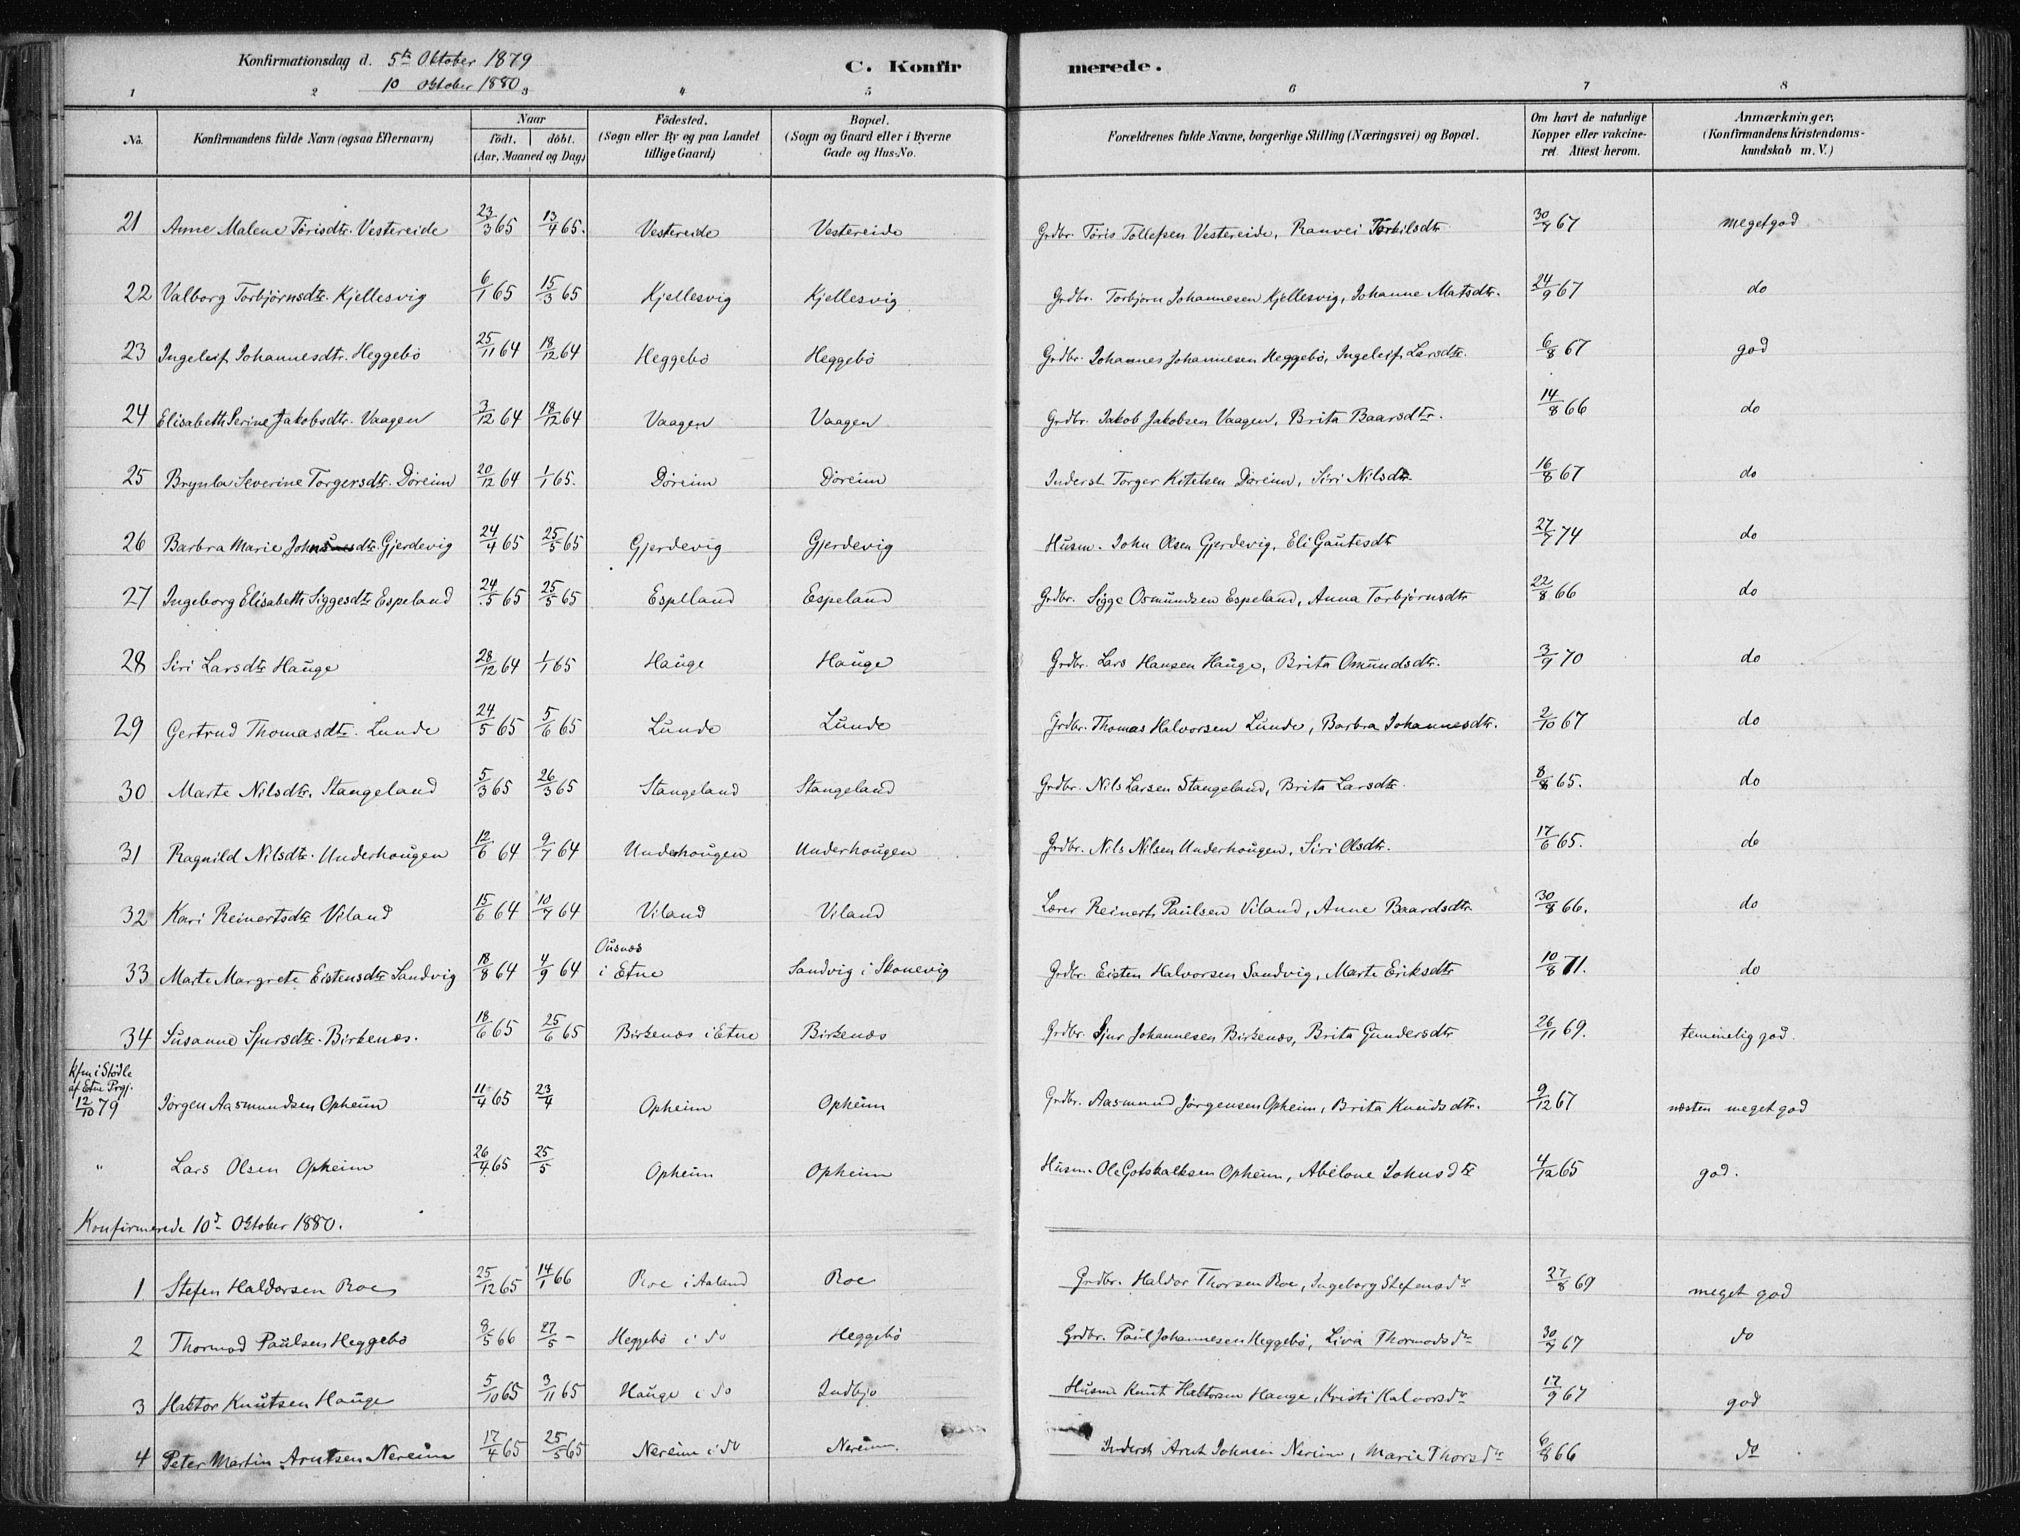 Konfirmationsdag d. 5te Oktober 1879
10 Oktober 1880
C. Konfir merede.
1 2 3 4 5 6 7 8
No. Konfirmandens fulde Navn (ogsaa Efternavn) Naar födt. döbt. (Aar, Maaned og Dag) Födested. (Sogn eller By og paa Landet tillige Gaard) Bopæl. (Sogn og Gaard eller i Byerne Gade og Hus-No. Forældrenes fulde Navne, borgerlige Stilling (Næringsvei) og Bopæl. Om havt de naturlige Kopper eller vakcineret. Attest herom. Anmærkninger. (Konfirmandens Kristendomskundskab m. V.)
21 Anne Malene Törisdtr. Vestereide 23/3 65 13/4 65. Vestereide Vestereide Grdbr. Töris Tollefsen Vestereide, Ranvei Torkilsdtr 30/7 67 meget god
22 Valborg Torbjörnsdtr. Kjellesvig 6/1 65 15/3 65 Kjellesvig Kjellesvig Grdbr. Torbjörn Johannesen Kjellesvig, Johanne Matsdtr. 24/9 67 do
23 Ingeleif Johannesdtr. Heggebö 25/11 64 18/12 64 Heggebö Heggebö Grdbr. Johannes Johannesen Heggebö, Ingeleif Larsdtr. 6/8 67 god
24 Elisabeth Serine Jakobsdtr. Vaagen 3/12 64 18/12 64 Vaagen Vaagen Grdbr. Jakob Jakobsen Vaagen, Brita Baarsdtr. 14/8 66 do
25 Brynla Severine Torgersdtr. Döreim 20/12 64 1/1 65. Döreim Döreim Inderst Torger Kitelsen Döreim, Siri Nilsdtr. 16/8 67 do
26 Barbra Marie Johnsdtr. Gjerdevig 24/4 65 25/5 65 Gjerdevig Gjerdevig Husm. John Olsen Gjerdevig, Eli Gautesdtr 27/7 74 do
27 Ingeborg Elisabeth Siggesdtr Espeland 24/5 65 25/5 65 Espelland Espeland Grdbr. Sigge Osmundsen Espeland, Anna Torbjörnsdtr 22/8 66 do
28 Siri Larsdtr Hauge 28/12 64 1/1 65 Hauge Hauge Grdbr. Lars Hansen Hauge, Brita Omundsdtr. 3/9 70 do
29 Gertrud Thomasdtr. Lunde 24/5 65 5/6 65 Lunde Lunde Grdbr. Thomas Halvorsen Lunde, Barbra Johannesdtr. 2/10 67 do
30 Marte Nilsdtr. Stangeland 5/3 65 26/3 65 Stangeland Stangeland Grdbr. Nils Larsen Stangeland, Brita Larsdtr. 8/8 65. do
31 Ragnild Nilsdtr. Underhougen 12/6 64 9/7 64 Underhougen Underhougen Grdbr. Nils Nilsen Underhougen, Siri Olsdtr. 17/6 65. do
32 Kari Reinertsdtr Viland 15/6 64 10/7 64 Viland Viland Lærer Reinert Paulsen Viland, Anne Baardsdtr. 30/8 66. do
33 Marte Margrete Eistensdtr Sandvig 18/8 64 4/9 64 Ousnæs i Etne Sandvig i Skonevig Grdbr. Eisten Halvorsen Sandvig, Marte Eriksdtr 10/8 71. do
34 Susanne Sjursdtr. Birkenæs. 18/6 65 25/6 65 Birkenæs i Etne Birkenæs Grdbr. Sjur Johannesen Birkenæs, Brita Gundersdtr 26/11 69. temmelig god.
kfm i Stödle af Etne Prgj. 12/10 79 Jörgen Aasmundsen Opheim 11/4 65 23/4 Opheim Opheim Grdbr. Aasmund Jörgensen Opheim, Brita Knudsdtr. 9/12 67 næsten meget god
" Lars Olsen Opheim 26/4 65 25/5 Opheim Opheim Husm. Ole Gotskalksen Opheim, Abelone Johnsdtr 4/12 65 god.
Konfirmerede 10d Oktober 1880.
1 Stefen Haldorsen Roe 25/12 65 14/1 66 Roe i Aaland Roe Grdbr. Haldor Thorsen Roe, Ingeborg Stefensdr 27/8 69 meget god
2 Thormod Paulsen Heggebö 8/5 66 27/5 - Heggebö i do Heggebö Grdbr. Paul Johannesen Heggebö, Livia Thormodsdr 30/7 67 do
3 Haktor Knutsen Hauge 5/10 65 3/11 65 Hauge i do Indbjo Husm Knut Haktorsen Hauge, Kristi Halvorsdr 17/9 67 god
4 Peter Martin Arntsen Nereim 17/4 65 25/5 65 Nereim i do Nereim. Inderst Arnt Johnsen Nereim, Marie Thorsdr 6/8 66 do